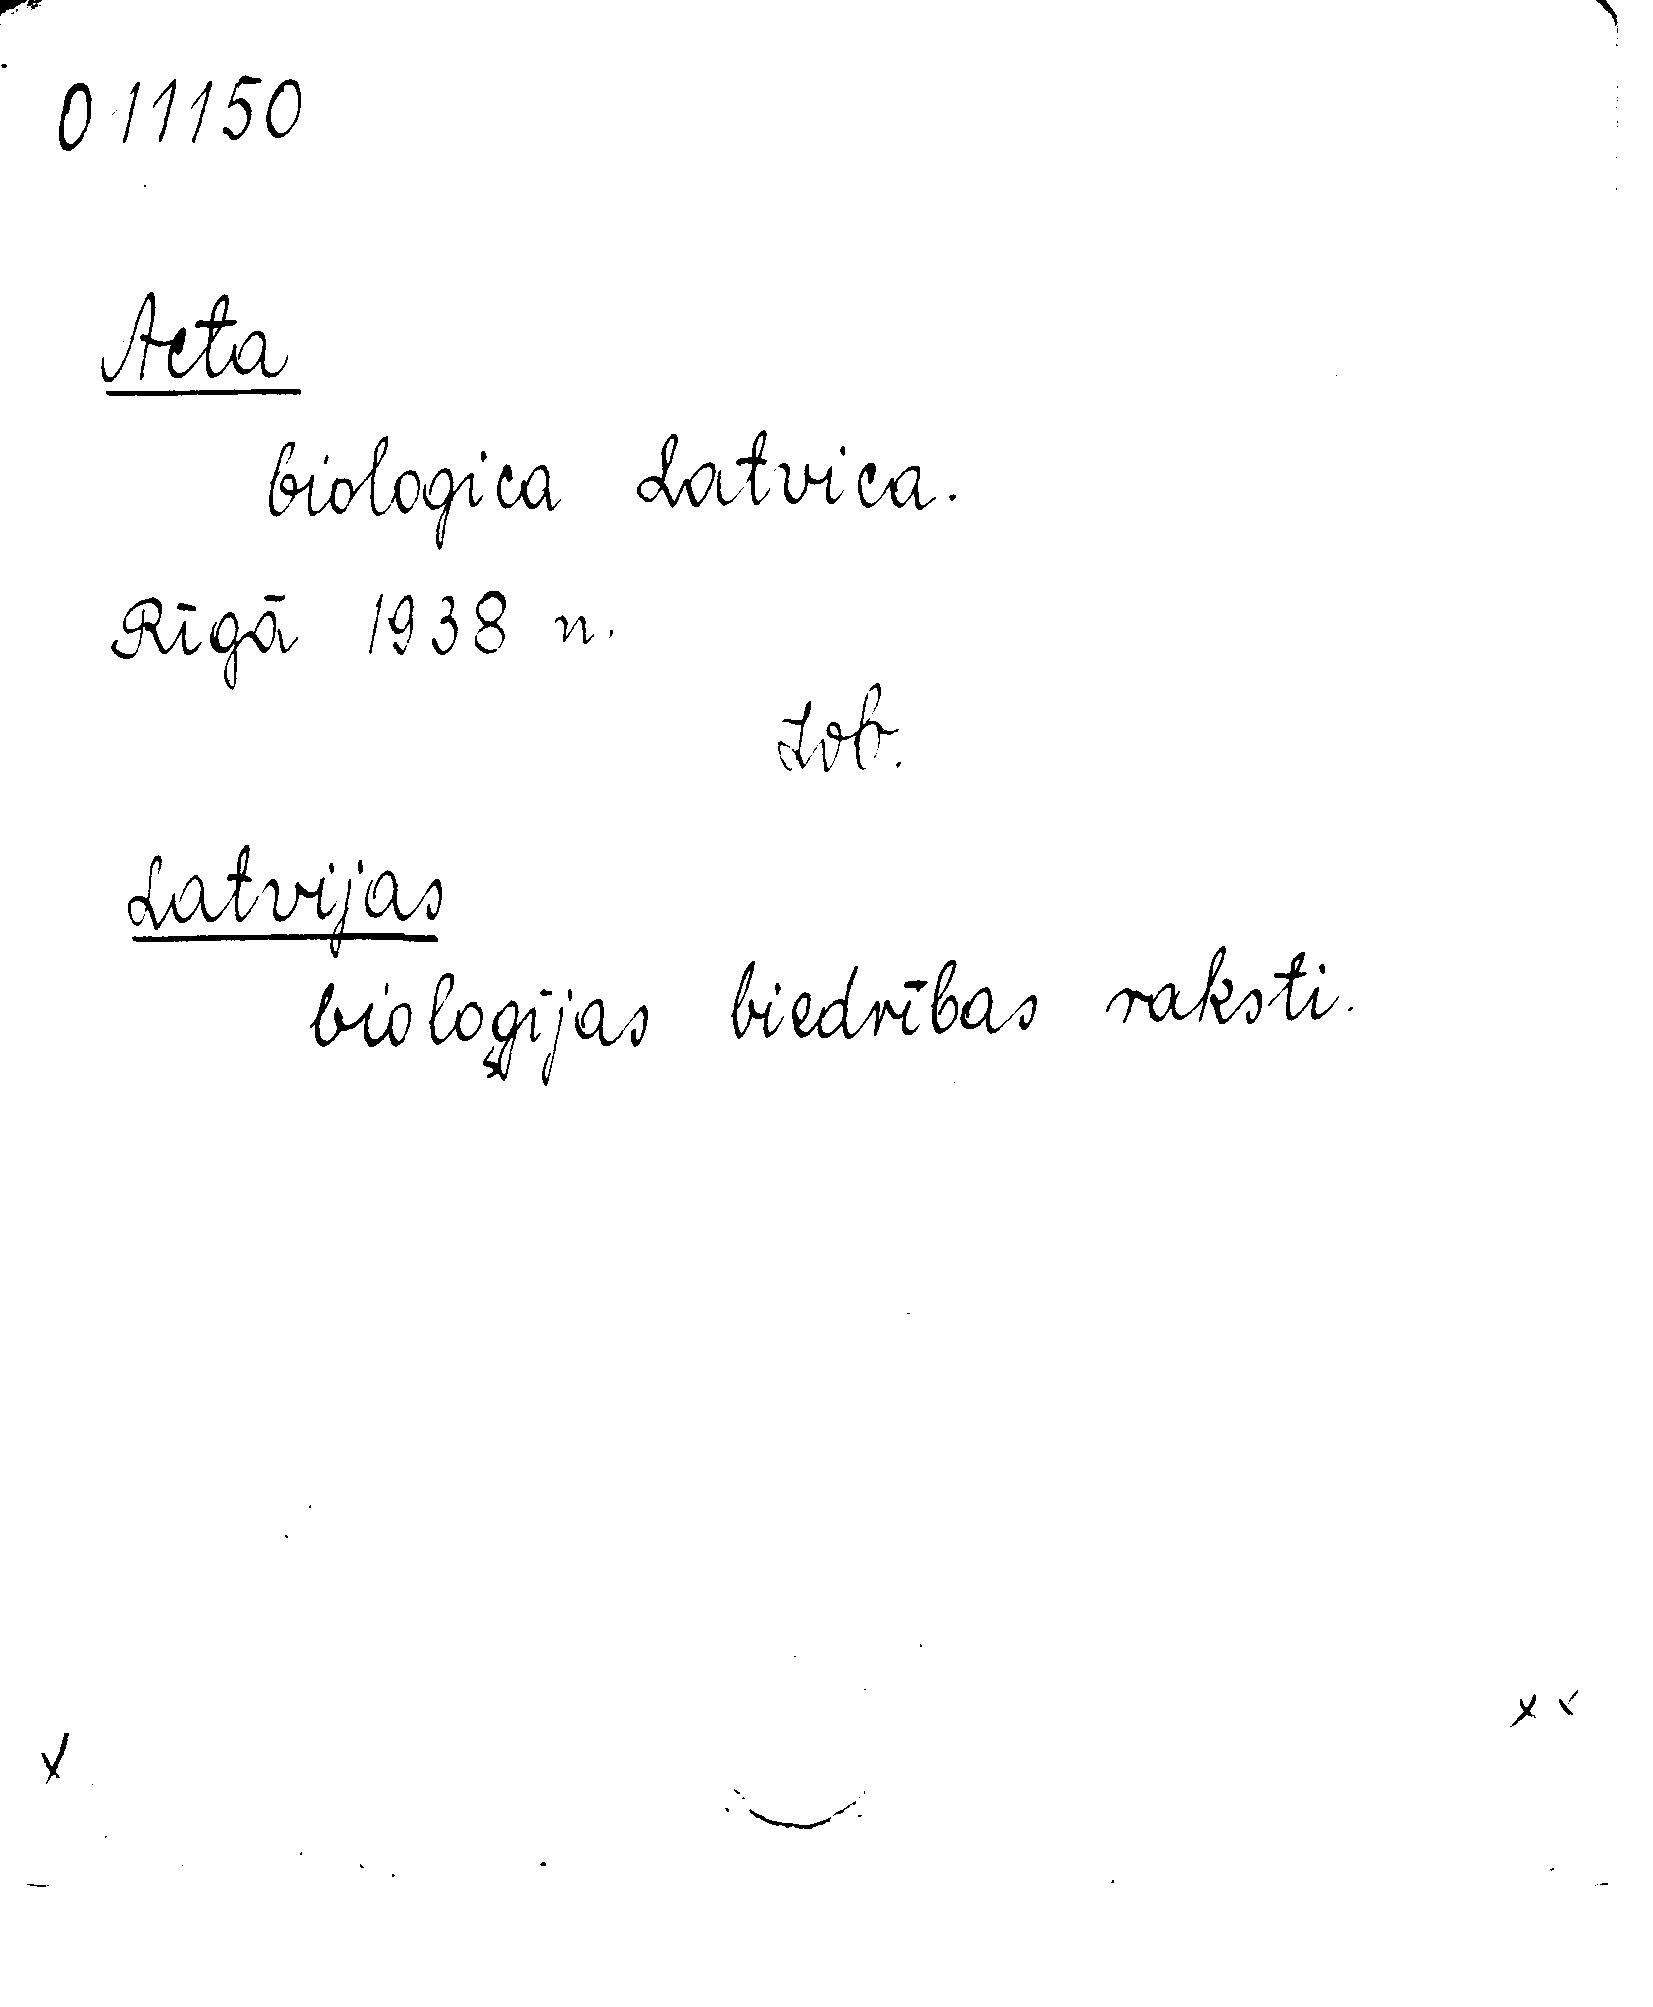 011150
Acta
biologica Latvica.
Rīgā 1938 n.
Lob.
Latvijas
bioloģijas biedrības raksti.